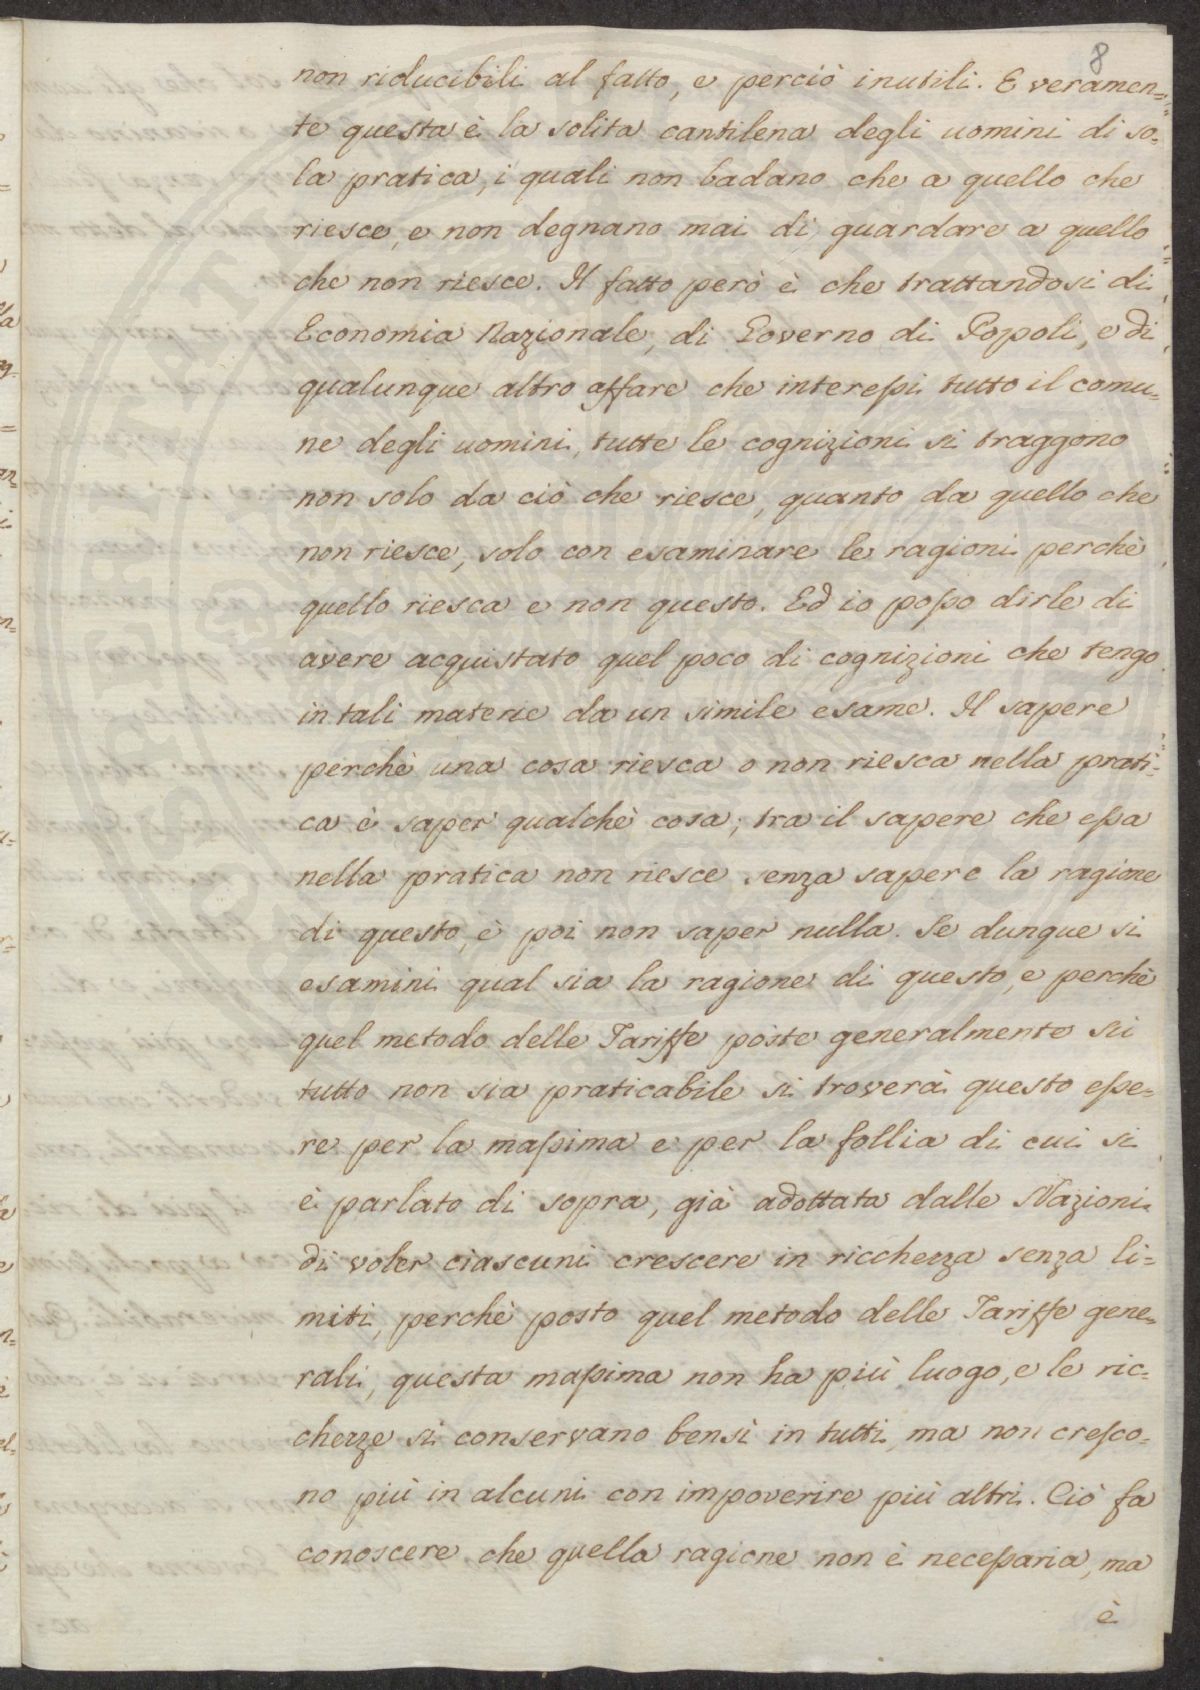 8
non riducibili al fatto, e perciò inutili. E veramen=
te questa è la solita cantilena degli uomini di so=
la pratica, i quali non badano che a quello che
riesce, e non degnano mai di guardare a quello
che non riesce. Il fatto però è che trattandosi di
Economia Nazionale, di Governo di Popoli, e di
qualunque altro affare che interessi tutto il comu=
ne degli uomini, tutte le cognizioni si traggono
non solo da ciò che riesce, quanto da quello che
non riesce, solo con esaminare le ragioni perchè
quello riesca e non questo. Ed io posso dirle di
avere acquistato quel poco di cognizioni che tengo
in tali materie da un simile esame. Il sapere
perchè una cosa riesca o non riesca nella prati=
ca è saper qualche cosa; tra il sapere che essa
nella pratica non riesce senza sapere la ragione
di questo, è poi non saper nulla. Se dunque si
esamini qual sia la ragione di questo, e perchè
quel metodo delle Tariffe poste generalmente su
tutto non sia praticabile si troverà questo esse=
re per la massima e per la follia di cui si
è parlato di sopra, già adottata dalle Nazioni
di voler ciascuni crescere in ricchezza senza li=
miti, perchè posto quel metodo delle Tariffe gene=
rali, questa massima non ha più luogo, e le ric=
chezze si conservano bensì in tutti, ma non cresco=
no più in alcuni con impoverire più altri. Ciò fa
conoscere che quella ragione non è necessaria, ma
è